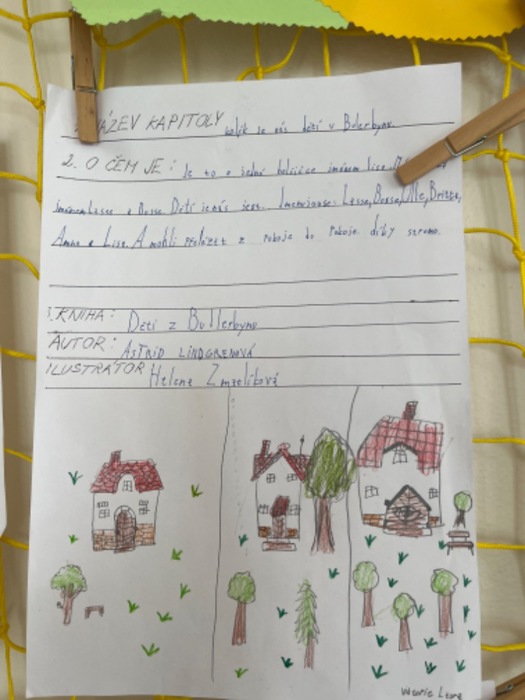 NÁZEV KAPITOLY kolik je nás dětí v Bulerbynu
2. O ČEM JE: Je to o sedmi holčičce jménem Lisa
Jménem Lasse a Bosse. Dětí je nás šest. Jmenujou se: Lassa, Bossa, Olle, Britta,
Anna a Lisa. A mohli přelézat z pokoje do pokoje díky stromu.
3. KNIHA: Děti z Bullerbynu
AUTOR: ASTRID LINDGRENOVÁ
ILUSTRÁTOR Helena Zmatlíková